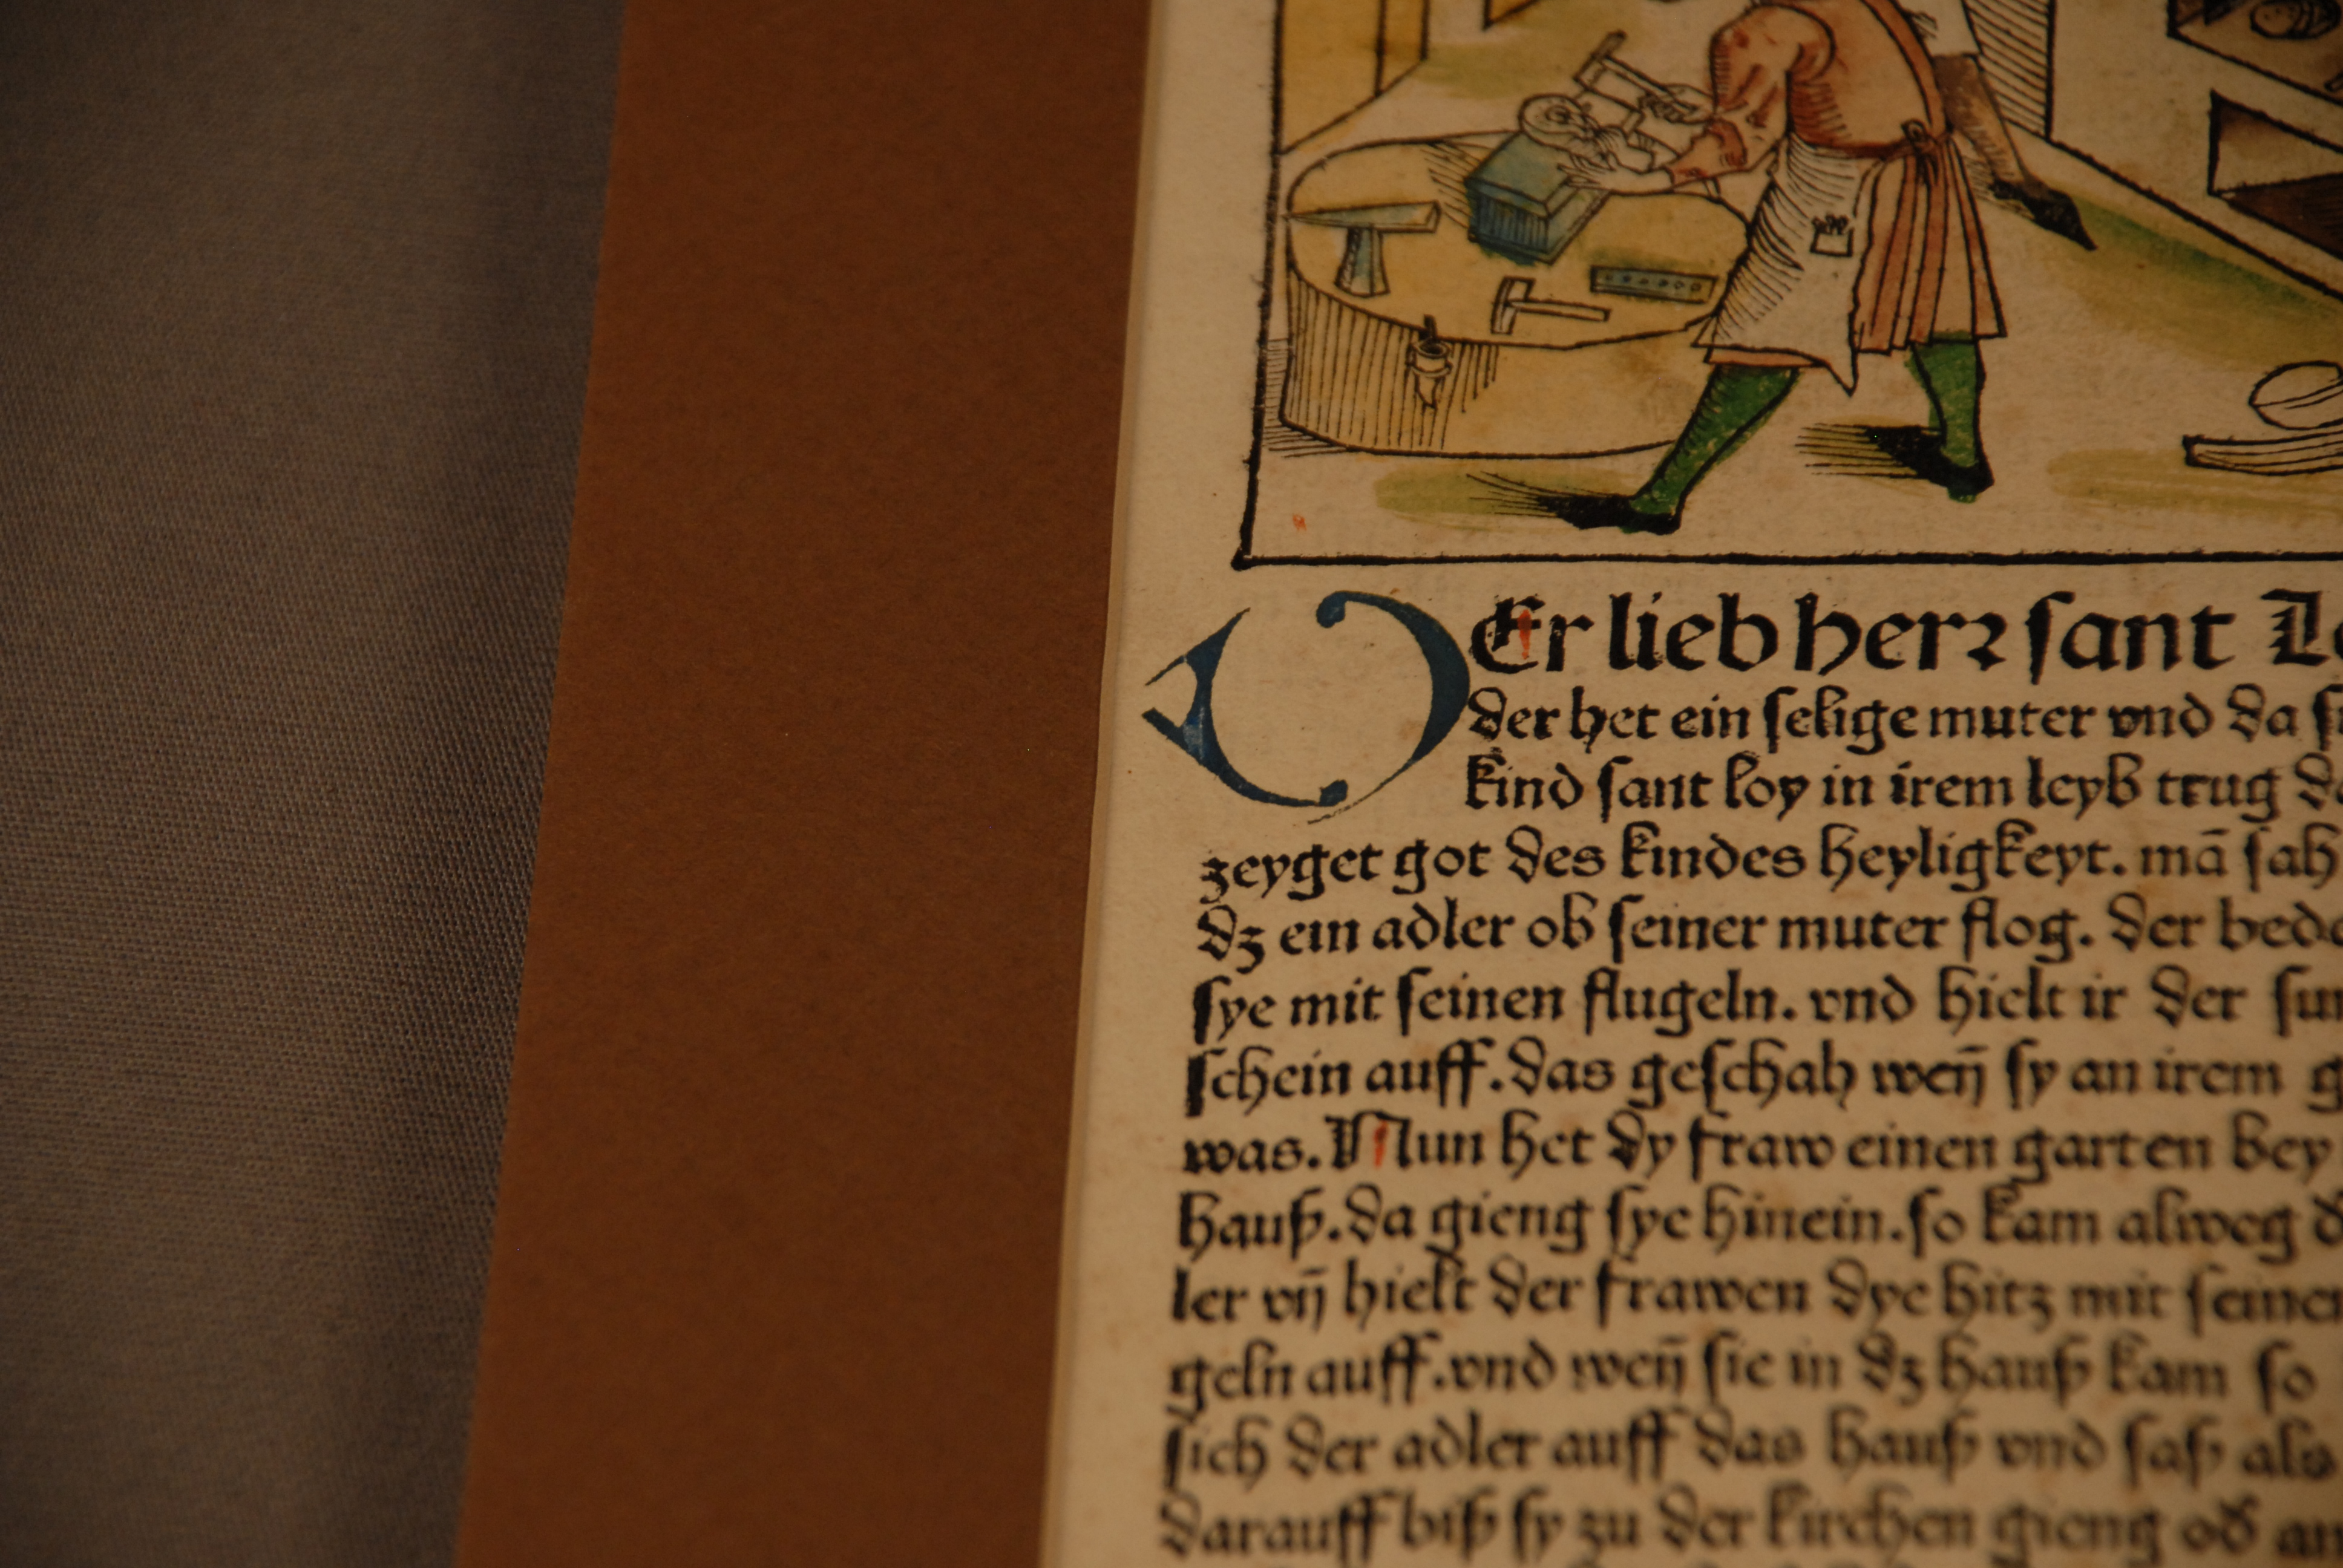 DEr lieb herr ſant
der het ein ſelige muter vnd da
kind ſant loy in irem leyb trug
zeyget got des kindes heyligkeyt. mā ſah
dz ein adler ob ſeiner muter flog. der
ſye mit ſeinen flugeln. vnd hielt ir der
ſchein auff. das geſchah weñ ſy an irem
was. Nun het dy fraw einen garten bey
hauß. da gieng ſye hinein. ſo kam alweg
ler vñ hielt der frawen dye hitz mit
geln auff. vnd weñ ſie in dz hauß kam ſo
ſich der adler auff das hauß vnd ſaß als
darauff biß ſy zu der kirchen gieng od